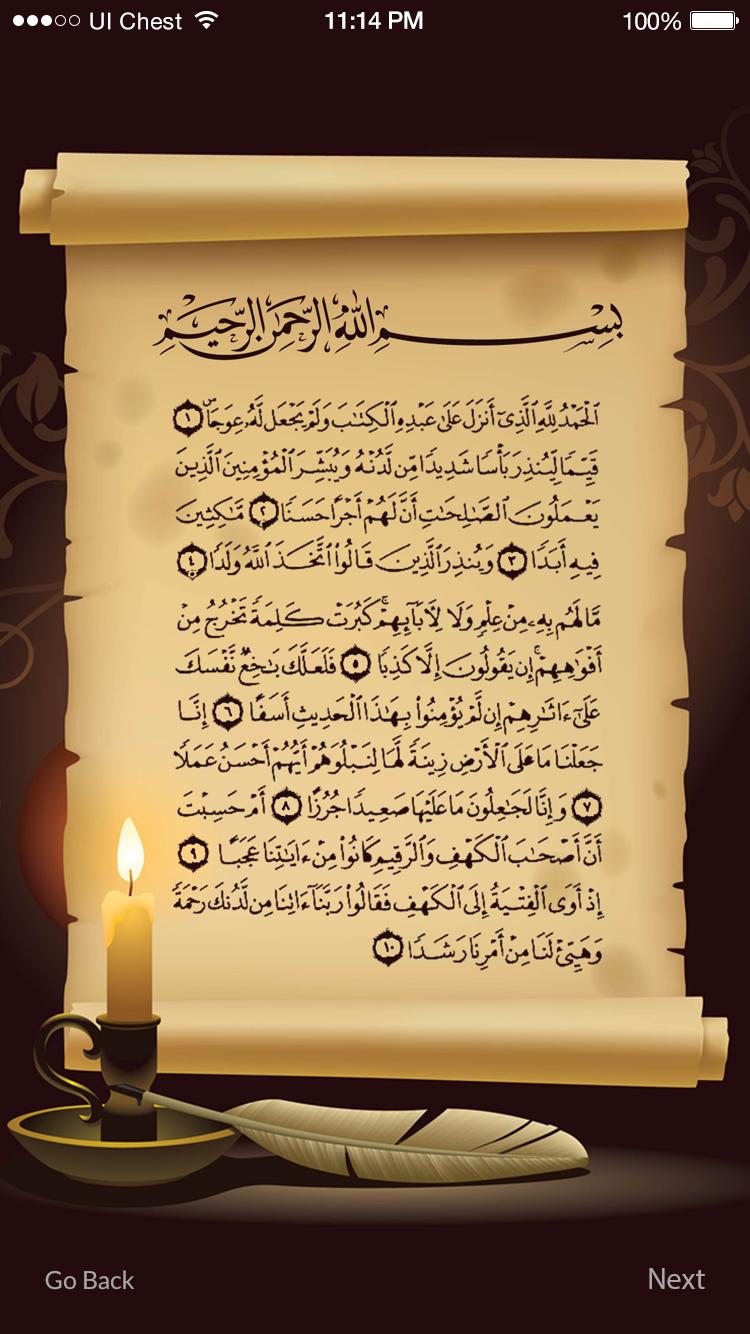 UI Chest 11:14 PM 100%
بِسْمِ اللَّهِ الرَّحْمَٰنِ الرَّحِيمِ
ٱلْحَمْدُ لِلَّهِ ٱلَّذِىٓ أَنزَلَ عَلَىٰ عَبْدِهِ ٱلْكِتَٰبَ وَلَمْ يَجْعَل لَّهُۥ عِوَجَاۜ ١
قَيِّمًا لِّيُنذِرَ بَأْسًا شَدِيدًا مِّن لَّدُنْهُ وَيُبَشِّرَ ٱلْمُؤْمِنِينَ ٱلَّذِينَ
يَعْمَلُونَ ٱلصَّٰلِحَٰتِ أَنَّ لَهُمْ أَجْرًا حَسَنًا ٢ مَّٰكِثِينَ
فِيهِ أَبَدًا ٣ وَيُنذِرَ ٱلَّذِينَ قَالُوا۟ ٱتَّخَذَ ٱللَّهُ وَلَدًا ٤
مَّا لَهُم بِهِۦ مِنْ عِلْمٍ وَلَا لِءَابَآئِهِمْ ۚ كَبُرَتْ كَلِمَةً تَخْرُجُ مِنْ
أَفْوَٰهِهِمْ ۚ إِن يَقُولُونَ إِلَّا كَذِبًا ٥ فَلَعَلَّكَ بَٰخِعٌ نَّفْسَكَ
عَلَىٰٓ ءَاثَٰرِهِمْ إِن لَّمْ يُؤْمِنُوا۟ بِهَٰذَا ٱلْحَدِيثِ أَسَفًا ٦ إِنَّا
جَعَلْنَا مَا عَلَى ٱلْأَرْضِ زِينَةً لَّهَا لِنَبْلُوَهُمْ أَيُّهُمْ أَحْسَنُ عَمَلًا
٧ وَإِنَّا لَجَٰعِلُونَ مَا عَلَيْهَا صَعِيدًا جُرُزًا ٨ أَمْ حَسِبْتَ
أَنَّ أَصْحَٰبَ ٱلْكَهْفِ وَٱلرَّقِيمِ كَانُوا۟ مِنْ ءَايَٰتِنَا عَجَبًا ٩
إِذْ أَوَى ٱلْفِتْيَةُ إِلَى ٱلْكَهْفِ فَقَالُوا۟ رَبَّنَآ ءَاتِنَا مِن لَّدُنكَ رَحْمَةً
وَهَيِّئْ لَنَا مِنْ أَمْرِنَا رَشَدًا ١٠
Go Back Next